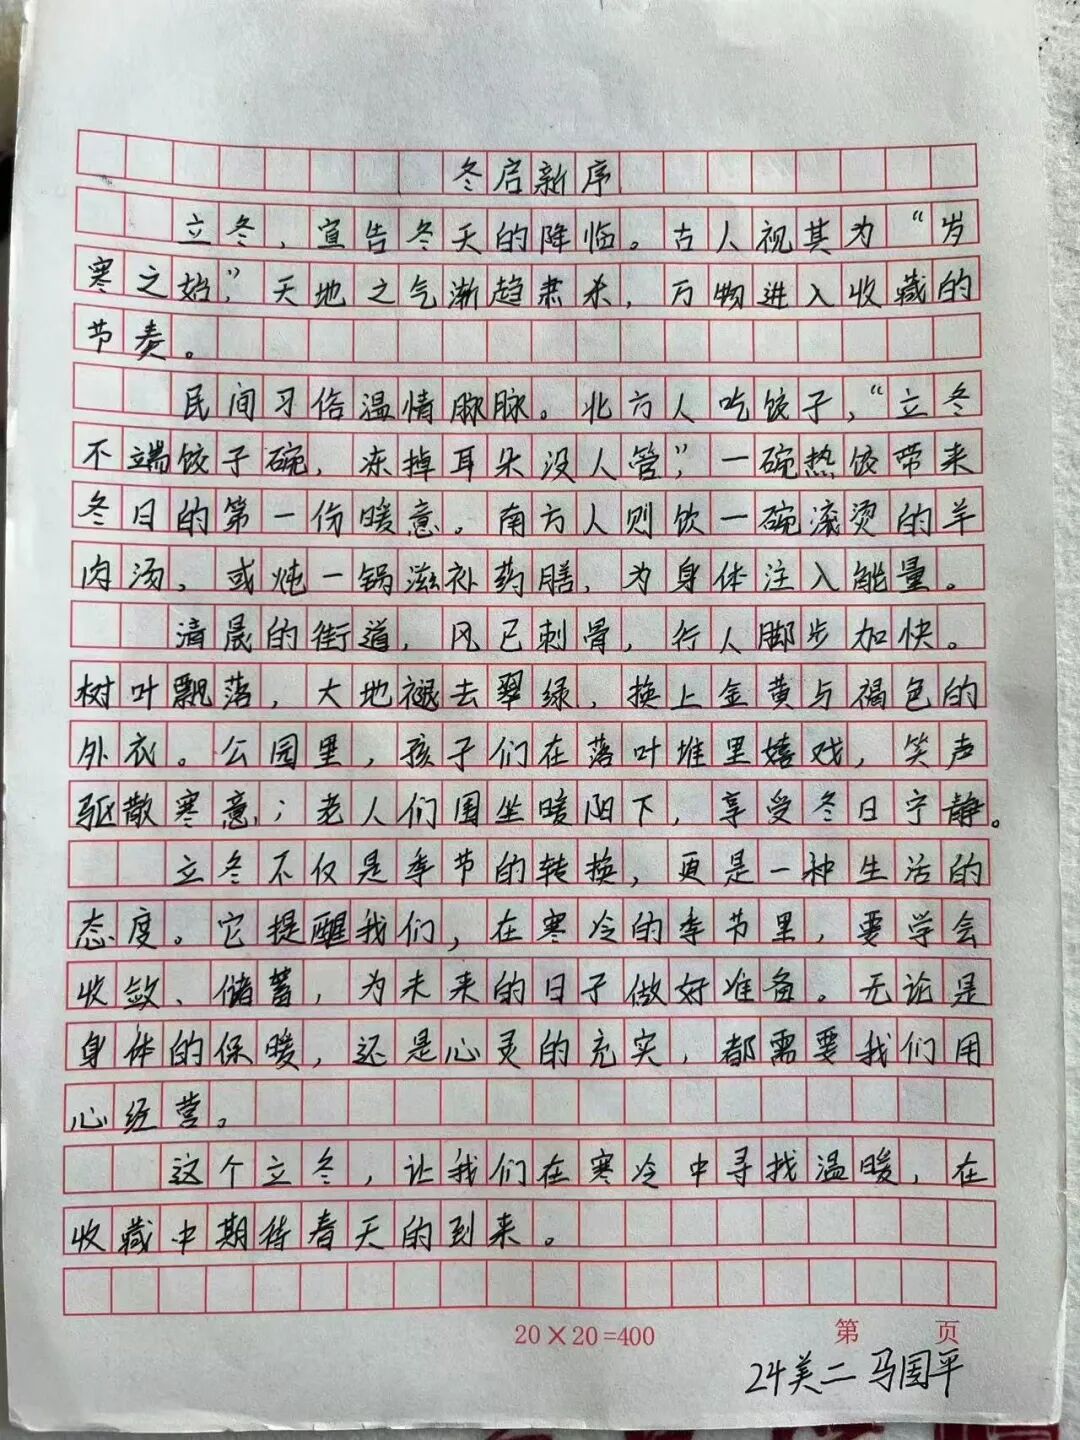 冬启新序
立冬，宣告冬天的降临。古人视其为“岁
寒之始”，天地之气渐趋肃杀，万物进入收藏的
节奏。
民间习俗温情脉脉。北方人吃饺子，“立冬
不端饺子碗，冻掉耳朵没人管”，一碗热饺带来
冬日的第一份暖意。南方人则饮一碗滚烫的羊
肉汤，或炖一锅滋补药膳，为身体注入能量。
清晨的街道，风已刺骨，行人脚步加快。
树叶飘落，大地褪去翠绿，换上金黄与褐色的
外衣。公园里，孩子们在落叶堆里嬉戏，笑声
驱散寒意；老人们围坐暖阳下，享受冬日宁静。
立冬不仅是季节的转换，更是一种生活的
态度。它提醒我们，在寒冷的季节里，要学会
收敛、储蓄，为未来的日子做好准备。无论是
身体的保暖，还是心灵的充实，都需要我们用
心经营。
这个立冬，让我们在寒冷中寻找温暖，在
收藏中期待春天的到来。
20×20=400 第 页
24美二 马国平